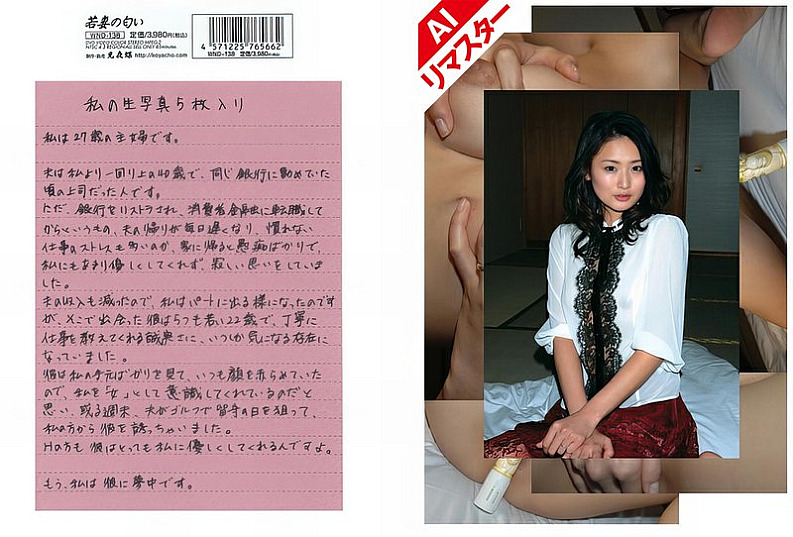 若妻の匂い
WND-138 定価/3,980円(税込)
4 571225 765662
WND-138 定価/3,980円(税込)
http://koyacho.com
私の生写真5枚入り
私は27歳の主婦です。
夫は私より一回り上の40歳で、同じ銀行に勤めていた
頃の上司だった人です。
ただ、銀行をリストラされ、消費者金融に転職して
からというもの、夫の帰りが毎日遅くなり、慣れない
仕事のストレスも多いのか、家に帰ると愚痴ばかりで、
私にもあまり優しくしてくれず、寂しい思いをしていま
した。
夫の収入も減ったので、私はパートに出る様になったのです
が、そこで出会った彼は5つも若い22歳で、丁寧に
仕事を教えてくれる誠実さに、いつしか気になる存在に
なっていました。
彼は私の手元ばかりを見て、いつも顔を赤らめていた
ので、私を「女」として意識してくれているのだと
思い、或る週末、夫がゴルフで留守の日を狙って、
私の方から彼を誘っちゃいました。
Hの方も彼はとっても私に優しくしてくれるんですよ。
もう、私は彼に夢中です。
AI
リマスター